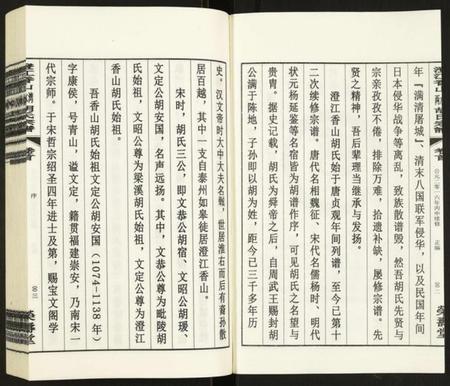 年「满清屠城」，清末八国联军侵华，以及民国年间
日本侵华战争等离乱，致族散谱毁，然吾胡氏先贤与
宗亲孜孜不倦，排除万难，拾遗补缺，屡修宗谱。先
贤之精神，吾后辈理当继承与发扬。
澄江香山胡氏始于唐贞观年间列谱，至今已第十
二次续修宗谱。唐代名相魏征、宋代名儒杨时、明代
状元杨延鉴等名宿皆为胡谱作序，可见胡氏之名望与
贵胄。据史记载，胡氏为舜帝之后，自周武王赐封胡
公满于陈地，子孙即以胡为姓，距今已三千多年历
史。汉文帝时大中大夫名巍，世居淮右而后有裔孙散
居百越，其中一支自泰州如皋徒居澄江香山。
宋时，胡氏三公，即文恭公胡宿、文昭公胡瑗、
文定公胡安国，名声远扬。其中，文恭公尊为毗陵胡
氏始祖，文昭公尊为梁溪胡氏始祖，文定公尊为澄江
香山胡氏始祖。
吾香山胡氏始祖文定公胡安国（1074-1138年）
字康侯，号青山，谥文定，籍贯福建崇安，乃南宋一
代宗师。于宋哲宗绍圣四年进士及第，赐宝文阁学
卷首
序